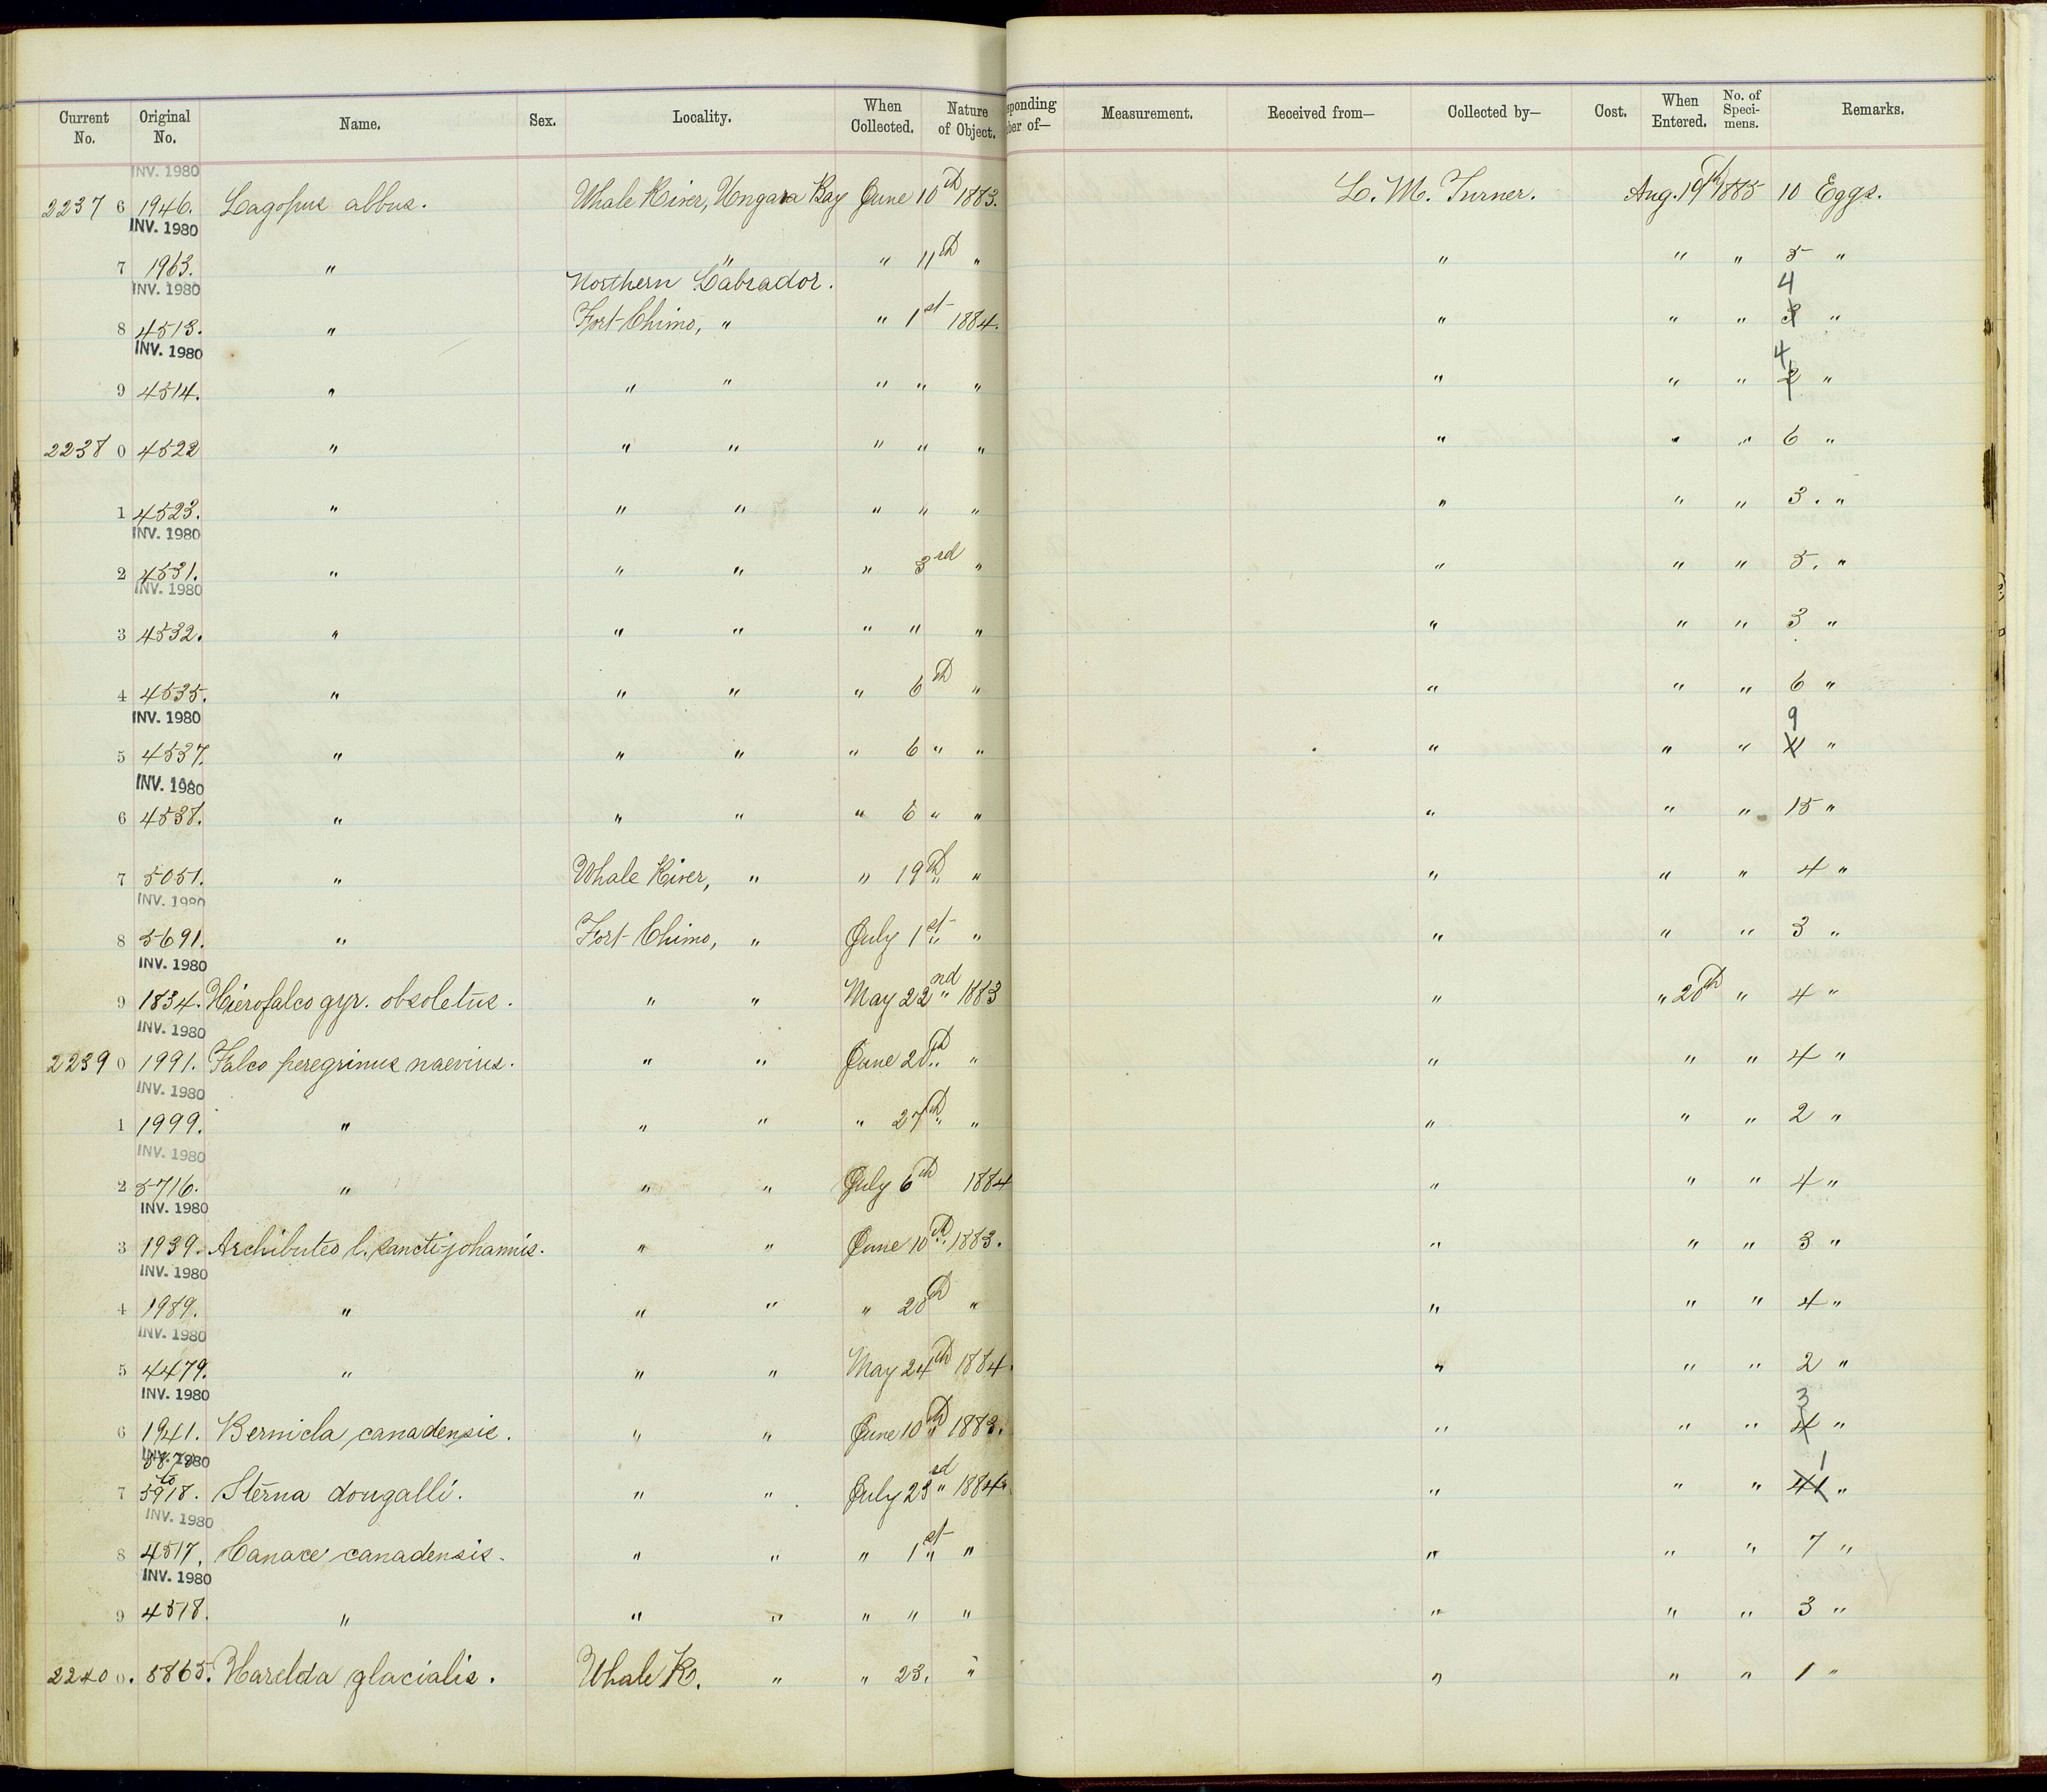 Current No. Original No. Name. Sex. Locality. When Collected. Nature of Object. sponding ber of— Measurement. Received from— Collected by— Cost. When Entered. No. of Speci-mens. Remarks.
INV. 1980
2237 6 1946. Lagopus albus. Whale River, Ungava Bay June 10th 1883. L. M. Turner. Aug. 19th 1885 10 Eggs.
INV. 1980
7 1963. " " " 11th " " " " 5 "
INV. 1980 Northern Labrador. 4
8 4513. " Fort Chimo, " " 1st 1884. " " " 3 "
INV. 1980 4
9 4514. " " " " " " " " " 2 "
2238 0 4522 " " " " " " " " " 6 "
1 4523. " " " " " " " " " 3. "
INV. 1980
2 4531. " " " " 3rd " " " " 5. "
INV. 1980
3 4532. " " " " " " " " " 3 "
4 4535. " " " " 6th " " " " 6 "
INV. 1980 9
5 4537. " " " " 6 " " " " " 4 "
INV. 1980
6 4538. " " " " 6 " " " " " 15 "
7 5051. " Whale River, " " 19th " " " " " 4 "
INV. 1980
8 5691. " Fort Chimo, " July 1st " " " " " 3 "
INV. 1980
9 1834. Hierofalco gyr. obsoletus. " " May 22nd " 1883 " " 20th " 4 "
INV. 1980
2239 0 1991. Falco peregrinus naevius. " " June 20th " " " " " 4 "
INV. 1980
1 1999. " " " " 27th " " " " " 2 "
INV. 1980
2 5716. " " " July 6th 1884 " " " 4 "
INV. 1980
3 1939. Archibuteo l. sancti-johannis. " " June 10th " 1883. " " " 3 "
INV. 1980
4 1989. " " " " 20th " " " " 4 "
INV. 1980
5 4479. " " " May 24th 1884. " " " 2 "
INV. 1980 3
6 1941. Bernicla canadensis. " " June 10th " 1883. " " " 4 "
INV. 1980
to 1
7 5918. Sterna dougalli. " " July 23rd " 1884. " " " 41 "
INV. 1980
8 4517. Canace canadensis. " " " 1st " " " " " 7 "
INV. 1980
9 4518. " " " " " " " " " 3 "
2240 0. 5865. Harelda glacialis. Whale R. " " 23. " " " " 1 "